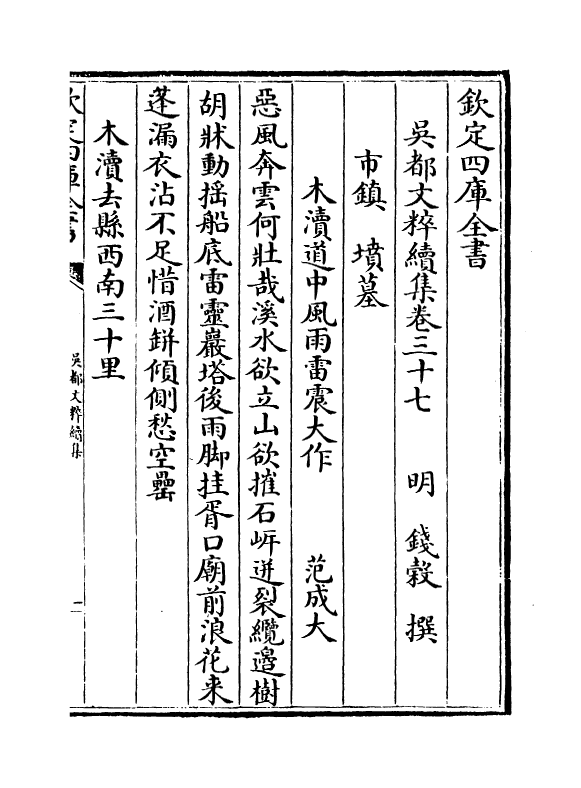 欽定四庫全書
吳都文粹續集卷三十七 明 錢穀 撰
市鎮 墳墓
木瀆道中風雨雷震大作 范成大
惡風奔雲何壯哉溪水欲立山欲摧石岸迸裂纜邉樹
胡牀動揺船底雷靈巖塔後雨脚挂胥口廟前浪花来
蓬漏衣沾不足惜酒缾傾側愁空罍
木瀆去縣西南三十里
吳都文粹續集
一